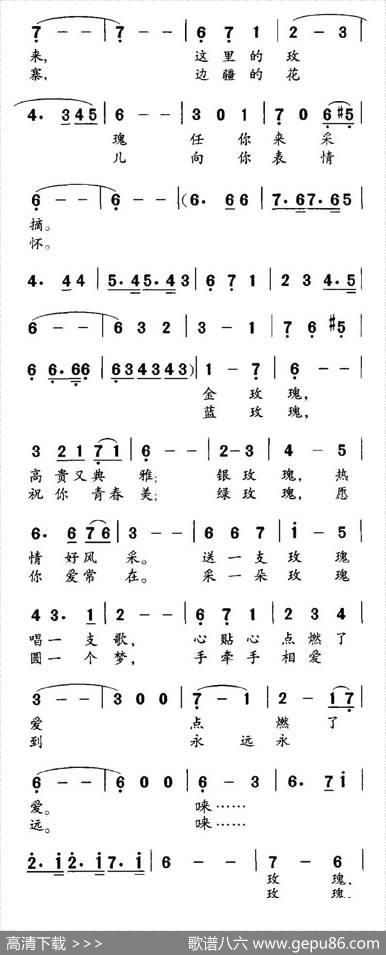 7 - - | 7 - - | 6 7 1 | 2 - 3 |
来, 这里的玫
寨, 边疆的花
4. 3 4 5 | 6 - - | 3 0 1 | 7 0 6 #5 |
瑰 任你来采
儿 向你表情
6 - - | 6 - - | (6. 6 6 | 7. 6 7. 6 5 |
摘。
怀。
4. 4 4 | 5. 4 5. 4 3 | 6 7 1 | 2 3 4. 5 |
6 - - | 6 3 2 | 3 - 1 | 7 6 #5 |
6 6. 6 6 | 6 3 4 3 4 3) | 1 - 7 | 6 - - |
金 玫 瑰,
蓝 玫 瑰,
3 2 1 7 1 | 6 - - | 2 - 3 | 4 - 5 |
高贵又典 雅; 银玫瑰, 热
祝你青春 美; 绿玫瑰, 愿
6. 6 7 6 | 3 - - | 6 6 7 | i - 5 |
情 好风 采。 送一支玫瑰
你 爱常 在。 采一朵玫瑰
4 3. 1 | 2 - - | 6 7 1 | 2 3 4 |
唱一 支歌, 心贴心点燃了
圆一 个梦, 手牵手相爱
3 - - | 3 0 0 | 7 - 1 | 2 - 1 7 |
爱 点 燃 了
到 永 远 永
6 - - | 6 0 0 | 6 - 3 | 6. 7 i |
爱。 唻……
远。 唻……
2. i 2. i 7. i | 6 - - | 7 - 6 |
玫 瑰,
玫 瑰.
高清下载 >>> 歌谱八六 www.gepu86.com